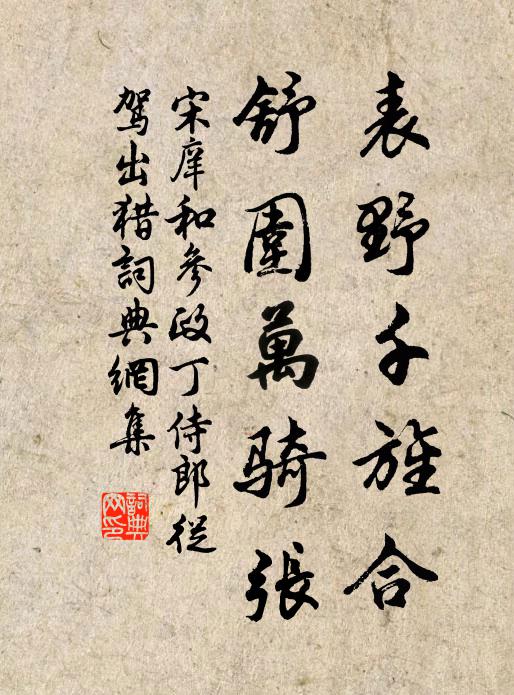 表野千旌合
舒圍萬騎張
宋庠和參政丁侍郎從
駕出猎詞典網集
詞典
网印